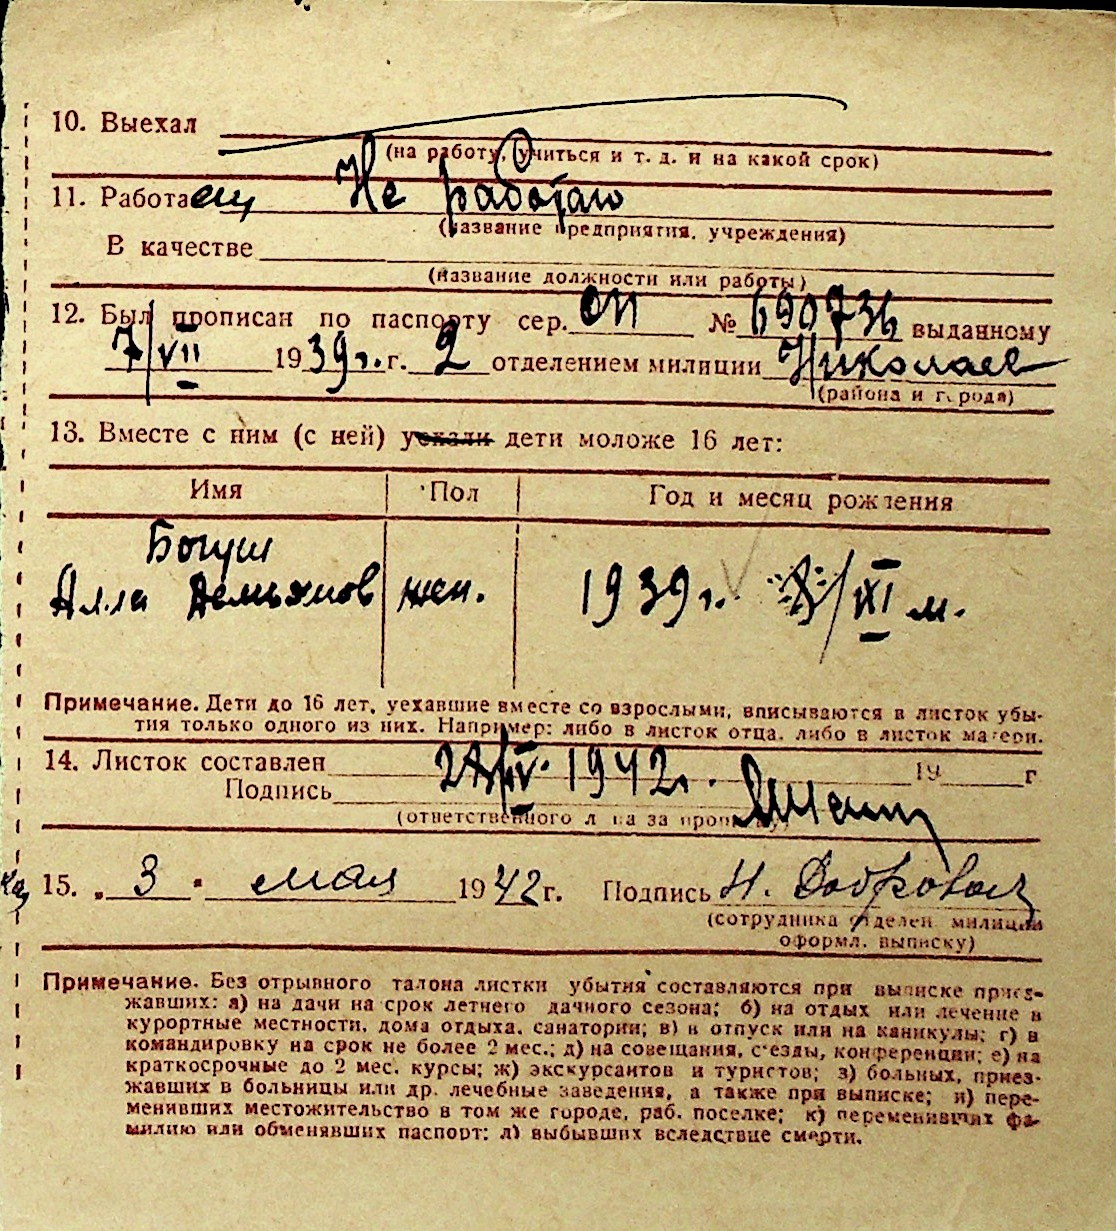 10. Выехал
(на работу, учиться и т. д. и на какой срок)
11. Работаещ Не работаю
(название предприятия, учреждения)
В качестве
(название должности или работы)
12. Был прописан по паспорту сер. ОП № 690736 выданному
7/VII 1939г. г. 2 отделением милиции Николаев
(района и города)
13. Вместе с ним (с ней) уехали дети моложе 16 лет:
Имя Пол Год и месяц рождения
Богуш
Алла Демьянов жен. 1939 г. XI м.
Примечание. Дети до 16 лет, уехавшие вместе со взрослыми, вписываются в листок убы-
тия только одного из них. Например: либо в листок отца, либо в листок матери.
14. Листок составлен IV 1942г. 19 г
Подпись
(ответственного лица за прописку)
15. „ 3 " мая 1942 г. Подпись Н.
(сотрудника отделен. милиции
оформл. выписку)
Примечание. Без отрывного талона листки убытия составляются при выписке приез-
жавших: а) на дачи на срок летнего дачного сезона; б) на отдых или лечение в
курортные местности, дома отдыха, санатории; в) в отпуск или на каникулы; г) в
командировку на срок не более 2 мес.; д) на совещания, с'езды, конференции; е) на
краткосрочные до 2 мес. курсы; ж) экскурсантов и туристов; з) больных, приез-
жавших в больницы или др. лечебные заведения, а также при выписке; и) пере-
менивших местожительство в том же городе, раб. поселке; к) переменивших фа-
милию или обменявших паспорт; л) выбывших вследствие смерти.